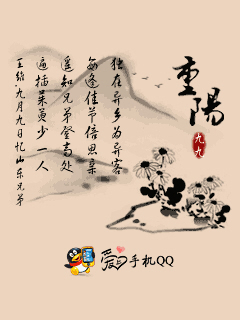 重陽
九九
独在异乡为异客
每逢佳节倍思亲
遥知兄弟登高处
遍插茱萸少一人
王维·九月九日忆山东兄弟
爱 手机QQ